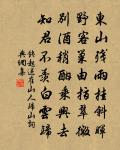 東山殘雨挂斜暉
野客巢由指翠微
別酒稍酣乘興去
知君不羨白雲歸
錢起送崔山人歸山詞
典網集